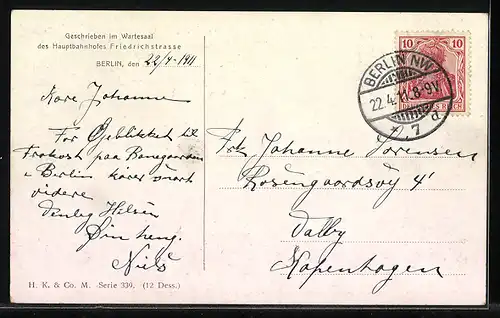 Geschrieben im Wartesaal
des Hauptbahnhofes Friedrichstrasse
BERLIN, den 22/4-1911
Kære Johanne
For Øjeblikket til
Frokost paa Banegaarden
i Berlin kører snart
videre
Hilsen
Din heng.
Niels
H. K. & Co. M. Serie 339. (12 Dess.)
10 10
DEUTSCHES REICH
BERLIN NW
22.4.11. 8-9V.
7
Johanne Sørensen
Rosengaardsvej 4'
Valby
Kopenhagen